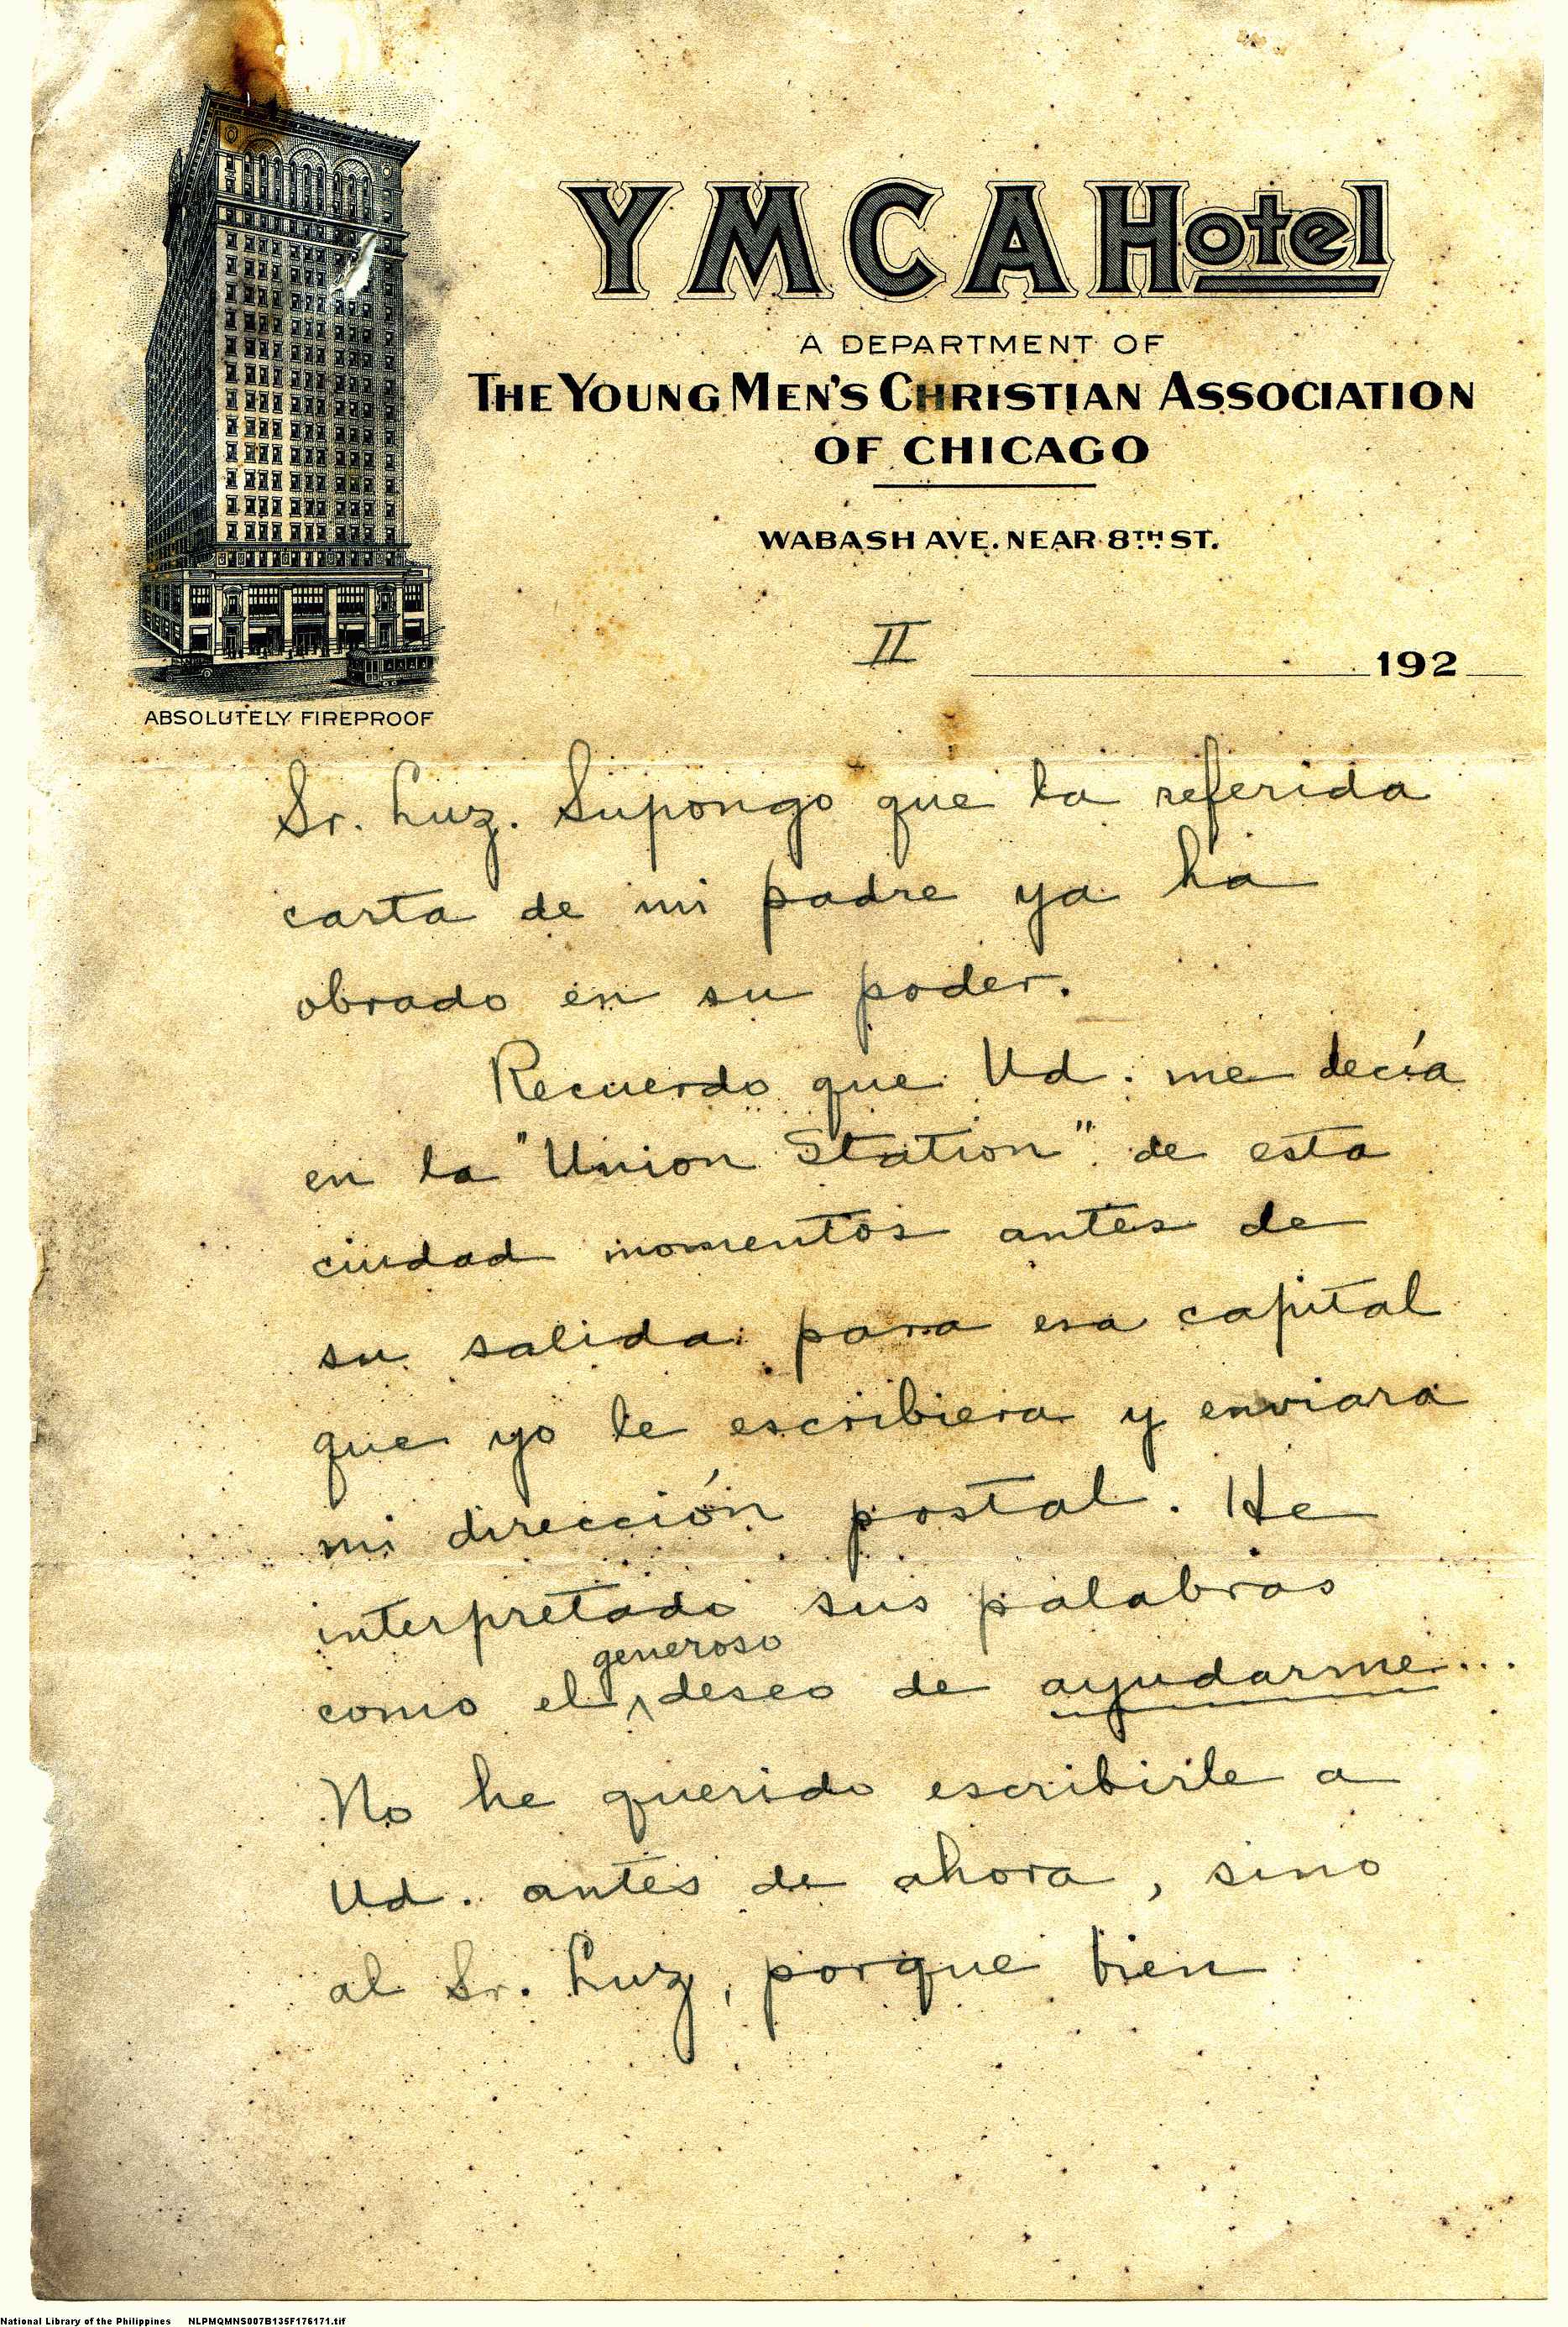 YMCA Hotel
A DEPARTMENT OF
THE YOUNG MEN'S CHRISTIAN ASSOCIATION
OF CHICAGO
WABASH AVE. NEAR 8TH ST.
II 192
ABSOLUTELY FIREPROOF
Sr. Luz. Supongo que la referida
carta de mi padre ya ha
obrado en su poder.
Recuerdo que Ud. me decía
en la "Union Station" de esta
ciudad momentos antes de
su salida para esa capital
que yo le escribiera y enviara
mi dirección postal. He
interpretado sus palabras
como el generoso deseo de ayudarme...
No he querido escribirle a
Ud. antes de ahora, sino
al Sr. Luz, porque bien
National Library of the Philippines NLPMQMNS007B135F176171.tif